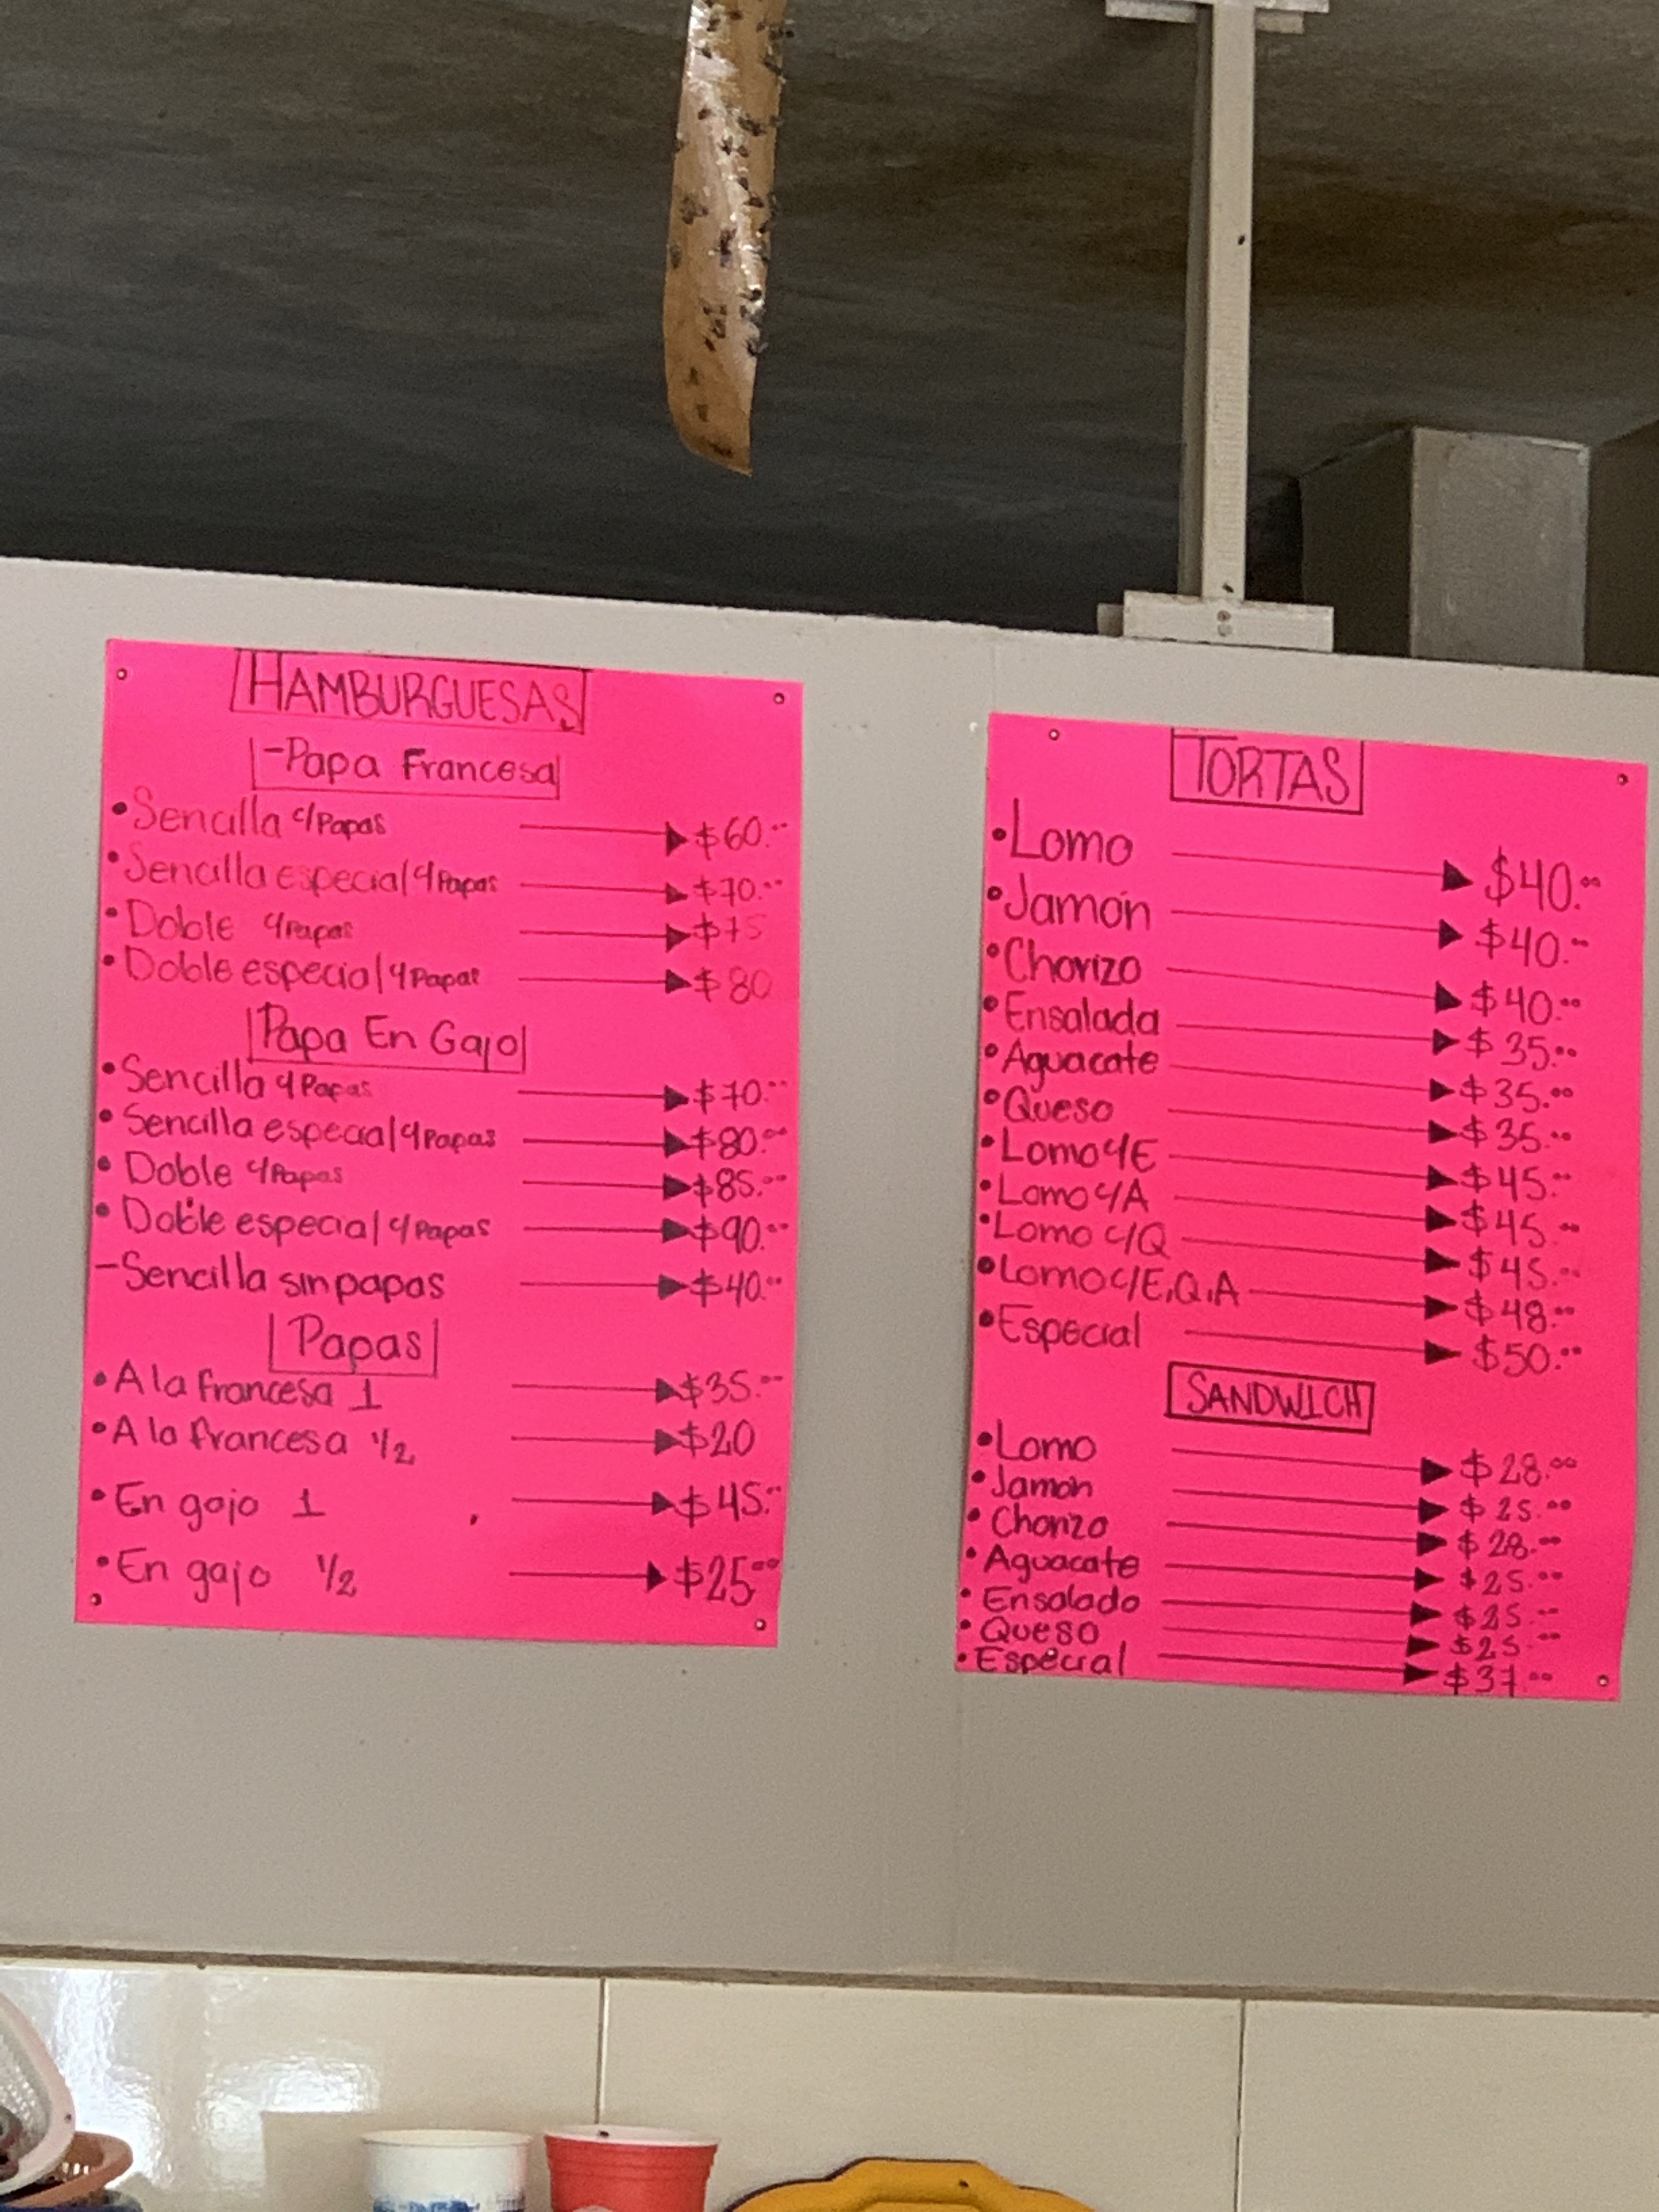 HAMBURGUESAS
-Papa Francesa
•Sencilla c/Papas $60.00
•Sencilla especial c/Papas $70.00
•Doble c/Papas $75
•Doble especial c/Papas $80
Papa En Gajo
•Sencilla c/Papas $70.00
•Sencilla especial c/Papas $80.00
•Doble c/Papas $85.00
•Doble especial c/Papas $90.00
-Sencilla sin papas $40.00
Papas
•A la francesa 1 $35.00
•A la francesa 1/2 $20
•En gajo 1 $45.00
•En gajo 1/2 $25.00
TORTAS
•Lomo $40.00
•Jamón $40.00
•Chorizo $40.00
•Ensalada $35.00
•Aguacate $35.00
•Queso $35.00
•Lomo c/E $45.00
•Lomo c/A $45.00
•Lomo c/Q $45.00
•Lomo c/E,Q,A $48.00
•Especial $50.00
SANDWICH
•Lomo $28.00
•Jamon $25.00
•Chorizo $28.00
•Aguacate $25.00
•Ensalada $25.00
•Queso $25.00
•Especial $37.00